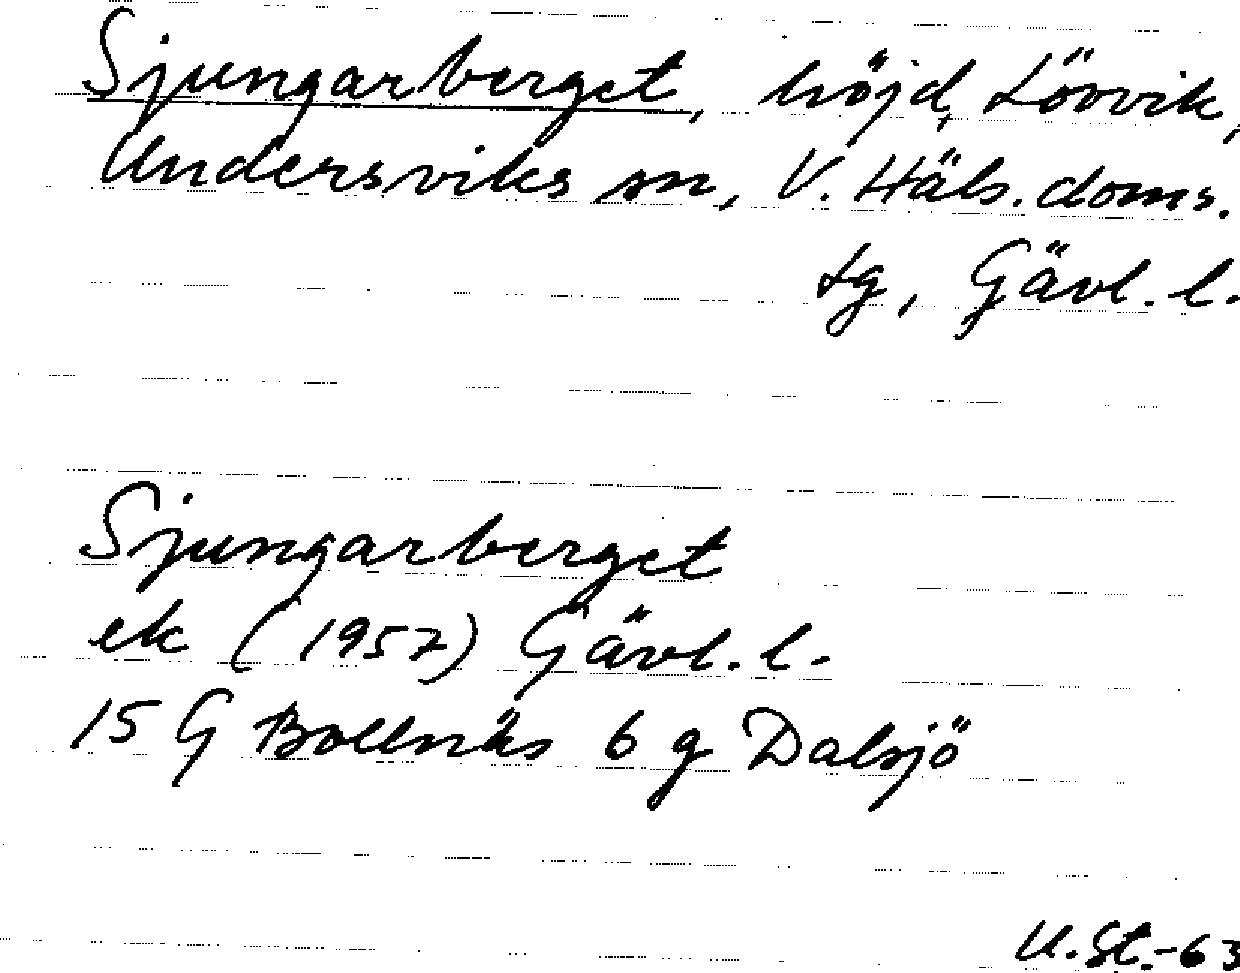 Sjungarberget, höjd, Lövvik,
Undersviks sn, V. Häls. doms.
tg, Gävl. l.
Sjungarberget
ek (1957) Gävl. l.
15 G Bollnäs 6 g Dalsjö
U.St.-63